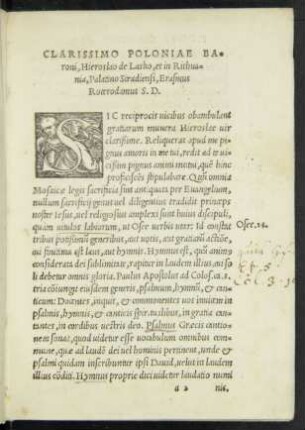 CLARISSIMO POLONIAE BA-
roni, Hieroslao de Lasko, et in Rithua-
nia, Palatino Siradiensi, Erasmus
Roterodamus S. D.
SIC reciprocis uicibus obambulant
gratiarum munera Hieroslae uir
clarissime. Reliquerat apud me pi-
gnus amoris in me tui, redit ad te ui-
cissim pignus animi mutui, quę hinc
proficisci stipulabare. Qñ omnia
Mosaicæ legis sacrificia sint antiquata per Euangelium,
nullum sacrificij genus uel diligentius tradidit princeps
noster Iesus, uel religiosius amplexi sunt huius discipuli,
quàm uitulos labiorum, ut Osee uerbis utar: Id constat
tribus potissimũ generibus, aut uotis, aut gratiarũ actiõe,
aut hymno. Hymnus est, quũ animus
consyderata dei sublimitate, rapitur in laudem illius, cui so
li debetur omnis gloria. Paulus Apostolus ad Coloss. ca. 3.
tria coniungit eiusdem generis, psalmum, hymnũ, &
ticum: Docentes, inquit, & commonentes uos inuicem in
psalmis, hymnis, & canticis spiritualibus, in gratia can-
tantes, in cordibus uestris deo. Psalmus Græcis cantio-
nem sonat, quod uidetur esse uocabulum omnibus com-
mune, quia ad laudẽ dei uel hominis pertinent, unde &
psalmi quidam inscribuntur ipsi Dauid, uelut in laudem
illius cõditi. Hymnus proprie dici uidetur laudatio numi
a 2 nis,
Osee. 14.